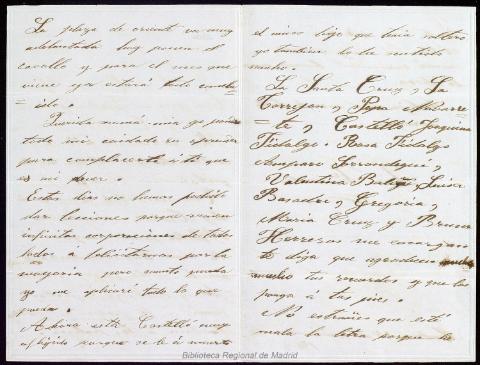 La plaza de oriente va muy
adelantada hoy ponen el
caballo y para el mes que
viene ya estará todo conclu=
=ido.
Querida mamá mia yo pondré
todo mi cuidado en aprender
para complacerte á ti que
es mi deber.
Estos dias no hemos podido
dar lecciones porque vienen
infinitas corporaciones de todos
lados á felicitarnos por la
mayoria pero cuanto pueda
yo me aplicaré todo lo que
pueda.
Ahora está Castelló muy
aflijido porque se le á muerto
el único hijo que tenia soltero
yo tambien lo he sentido
mucho.
La Santa Cruz y La
Torrejon y Pepa
=te y Castelló Joaquina
Fidalgo. Rosa Fidalgo
Amparo Sorrondegui y
Valentina Luisa
Basadre y Gregoria y
Maria Cruz y Bruna
Herreros me encargan
te diga que agradecen mucho
mucho tus recuerdos y que las
ponga á tus pies.
No estrañes que esté
mala la letra porque he
Biblioteca Regional de Madrid